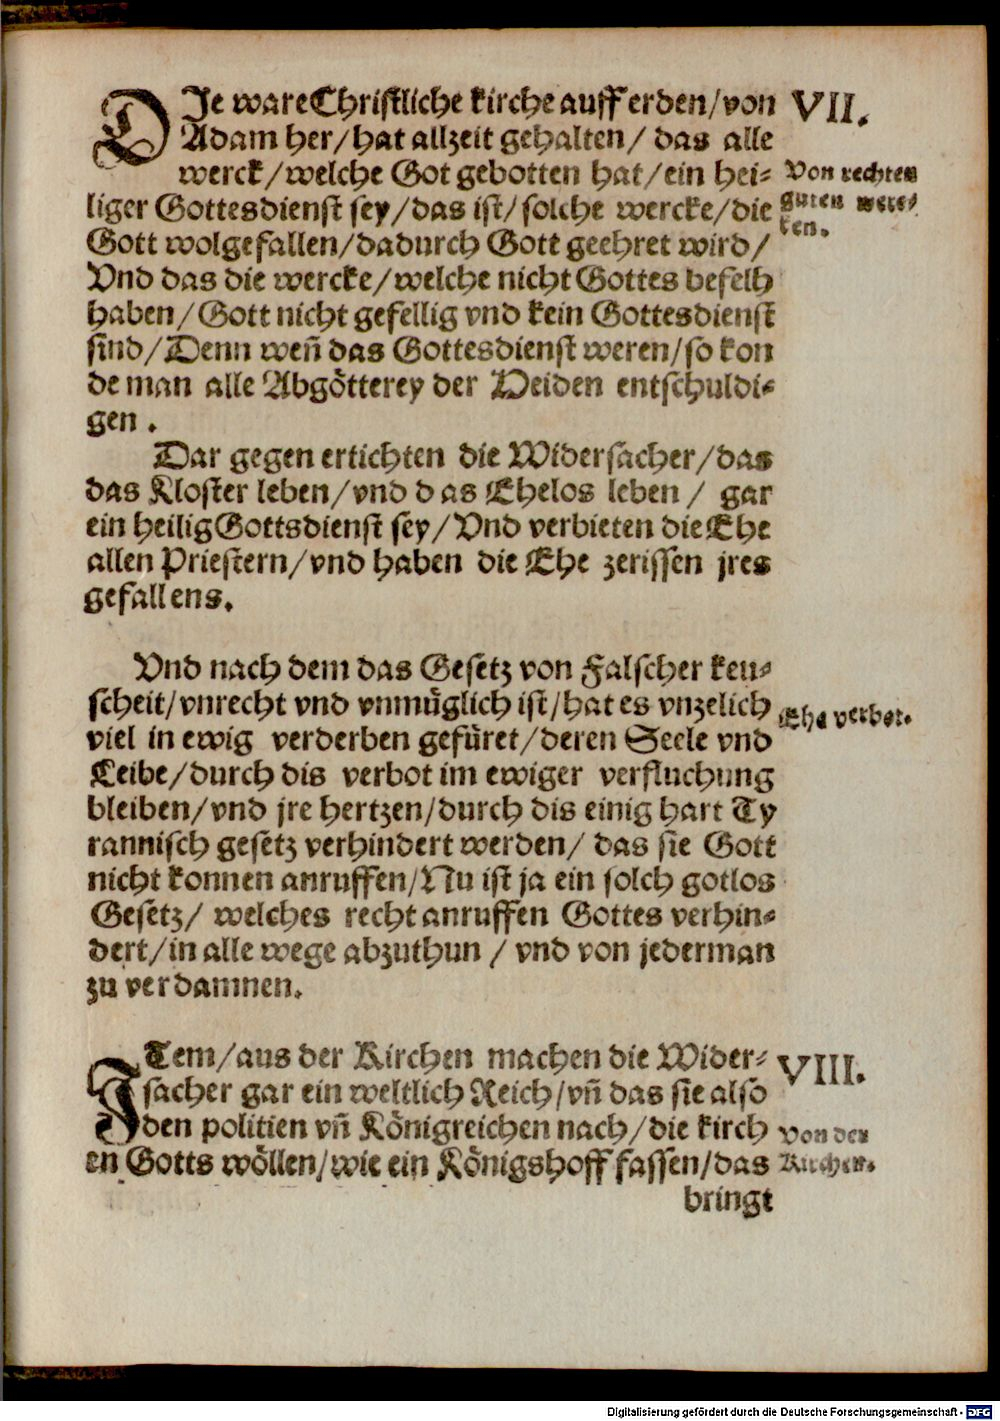 DIe ware Christliche kirche auff erden/von
Adam her/hat allzeit gehalten/ das alle
werck/welche Got gebotten hat/ein hei-
liger Gottesdienst sey/das ist/solche wercke/die
Gott wolgefallen/dadurch Gott geehret wird/
Vnd das die wercke/welche nicht Gottes befelh
haben/Gott nicht gefellig vnd kein Gottesdienst
sind/Denn weñ das Gottesdienst weren/so kon
de man alle Abgötterey der Heiden entschuldi-
gen.
VII.
Von rechten
guten werc-
ken.
Dar gegen ertichten die Widersacher/das
das Kloster leben/vnd das Ehelos leben/ gar
ein heilig Gottsdienst sey/Vnd verbieten die Ehe
allen Priestern/vnd haben die Ehe zerissen jres
gefallens.
Vnd nach dem das Gesetz von Falscher keu-
scheit/vnrecht vnd vnmüglich ist/hat es vnzelich
viel in ewig verderben gefüret/deren Seele vnd
Leibe/durch dis verbot im ewiger verfluchung
bleiben/vnd jre hertzen/durch dis einig hart Ty
rannisch gesetz verhindert werden/ das sie Gott
nicht konnen anruffen/Nu ist ja ein solch gotlos
Gesetz/ welches recht anruffen Gottes verhin-
dert/in alle wege abzuthun/ vnd von jederman
zu verdamnen.
Ehe verbot.
ITem/aus der Kirchen machen die Wider-
sacher gar ein weltlich Reich/vñ das sie also
den politien vñ Königreichen nach/die kirch
en Gotts wöllen/wie ein Königshoff fassen/das
bringt
VIII.
Von der
Kirchen.
Digitalisierung gefördert durch die Deutsche Forschungsgemeinschaft - DFG